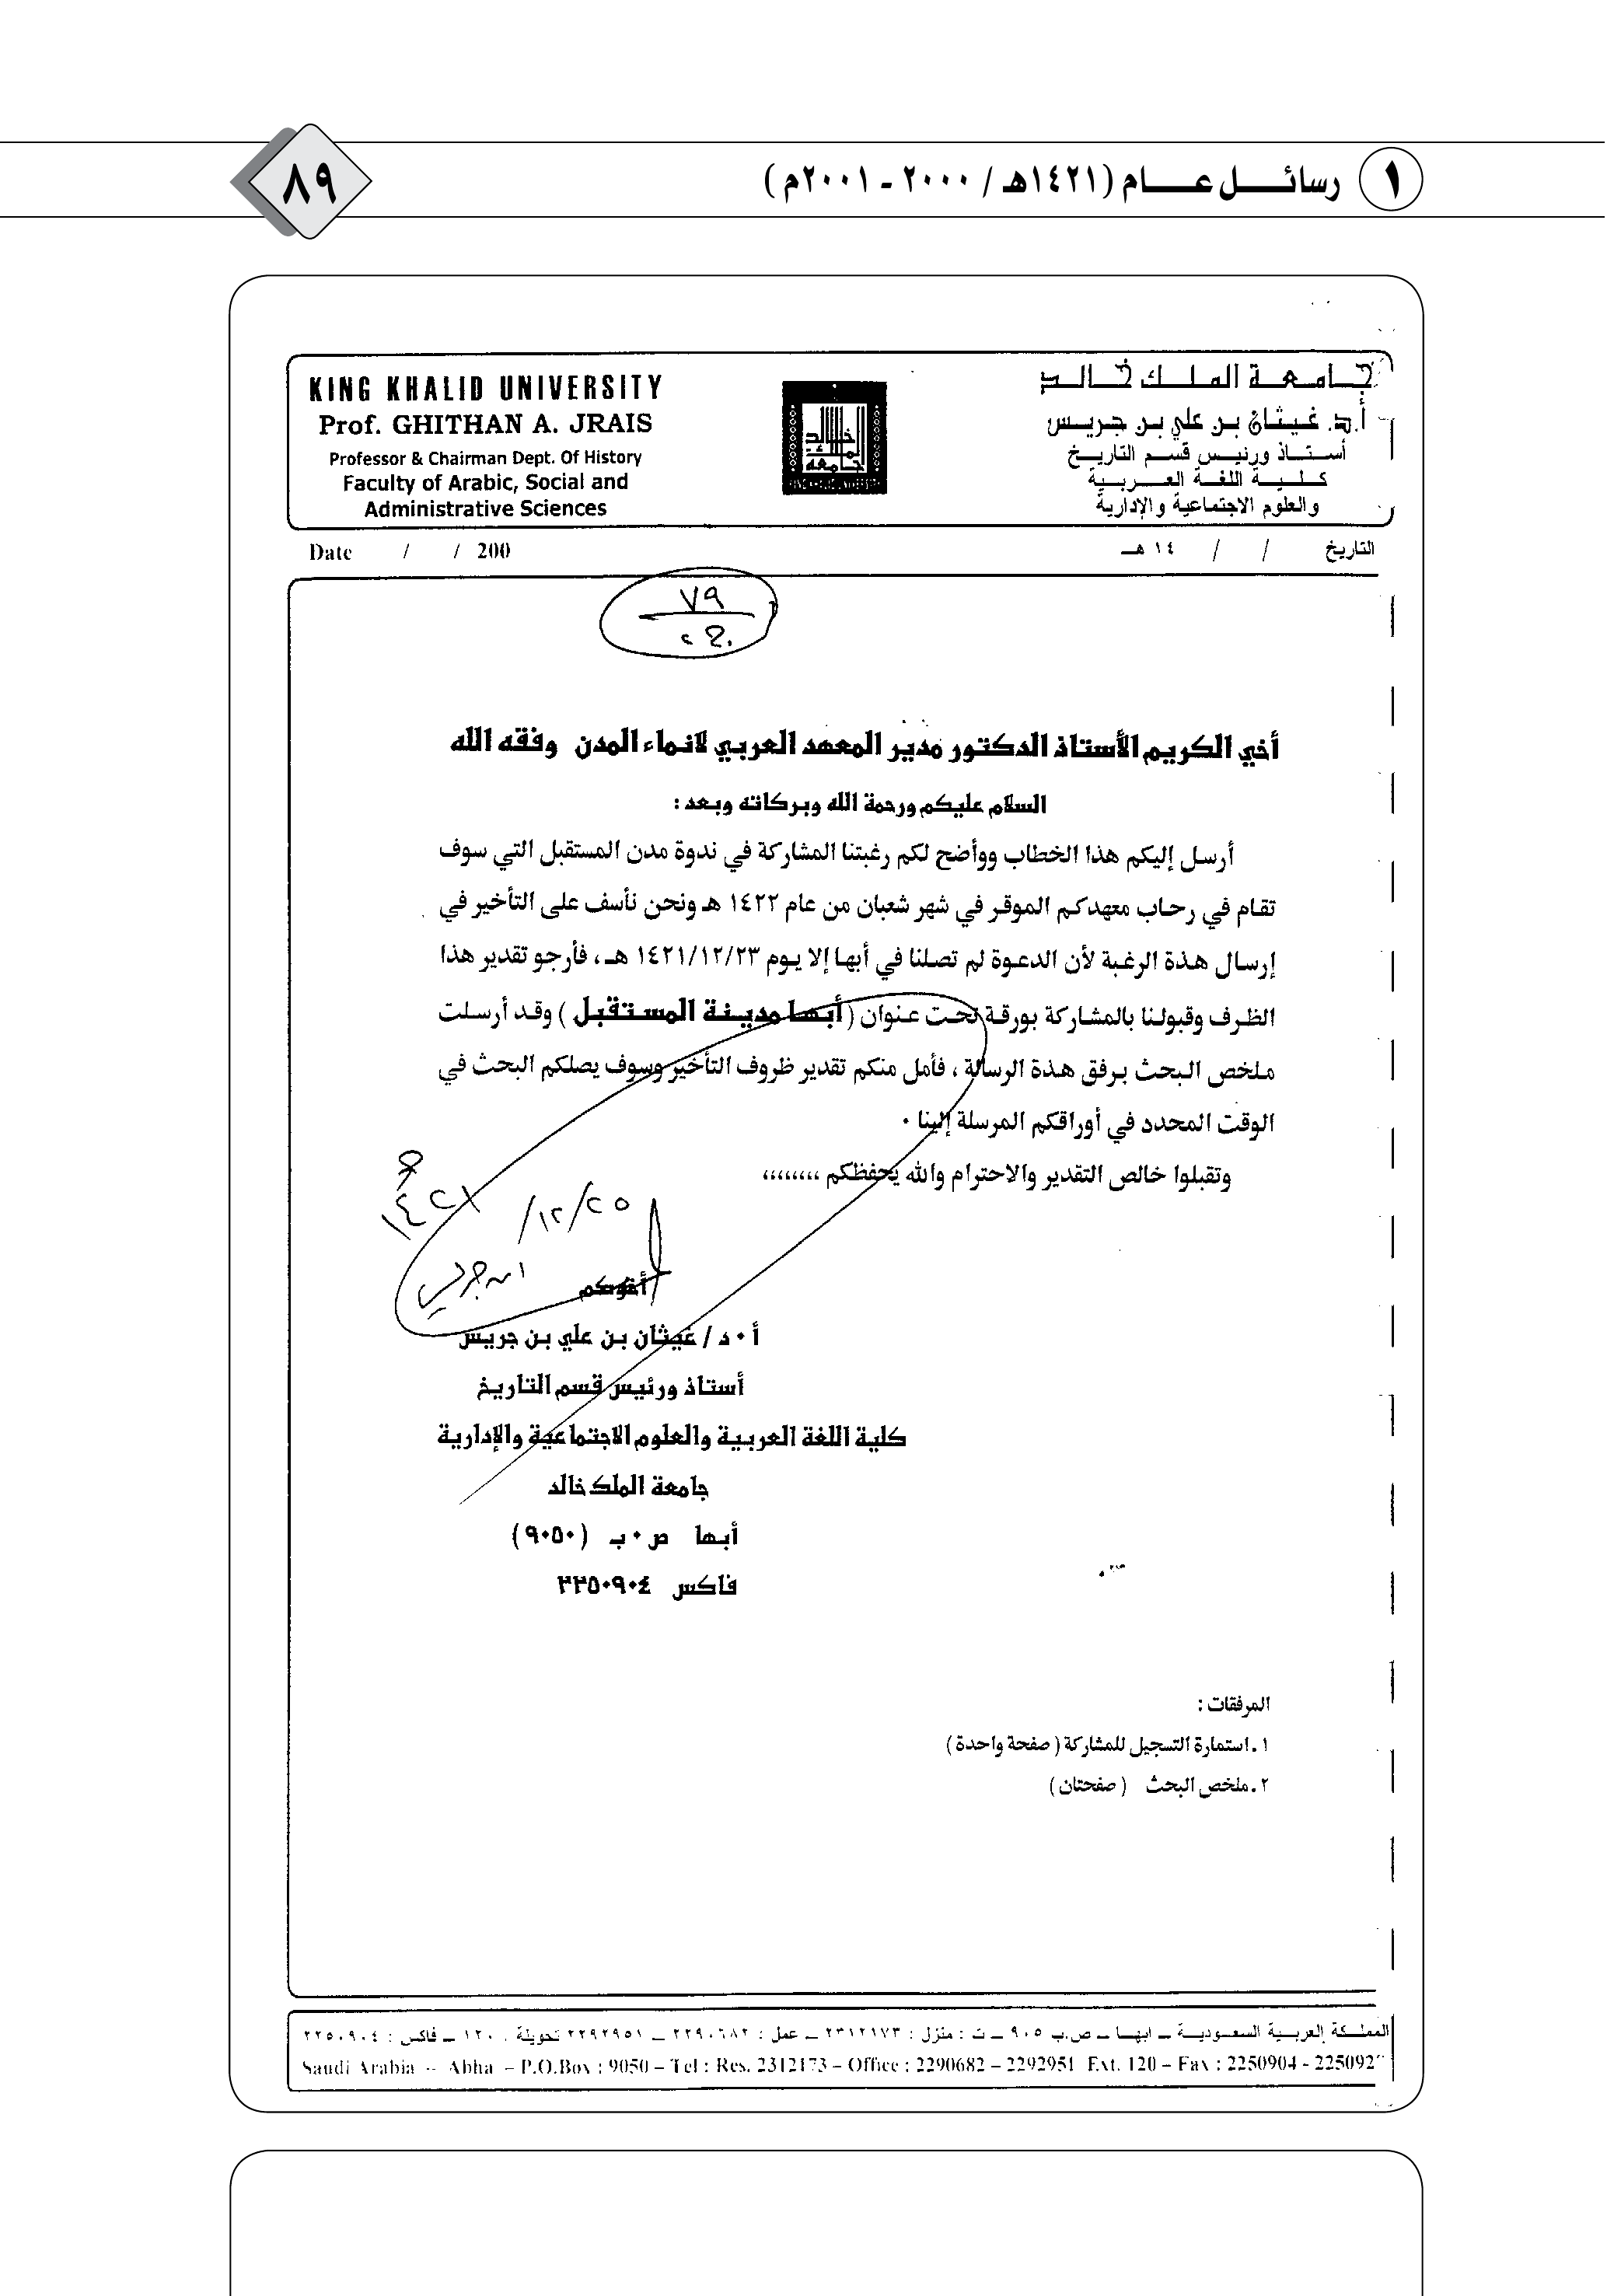 ١ رسائل عام (١٤٢١هـ / ٢٠٠٠ - ٢٠٠١م)
٨٩
KING KHALID UNIVERSITY
Prof. GHITHAN A. JRAIS
Professor & Chairman Dept. Of History
Faculty of Arabic, Social and
Administrative Sciences
جامعة الملك خالد
أ.د. غيثان بن علي بن جريس
أستاذ ورئيس قسم التاريخ
كلية اللغة العربية
والعلوم الاجتماعية والإدارية
Date / / 200
التاريخ / / ١٤ هـ
٧٩
أخي الكريم الأستاذ الدكتور مدير المعهد العربي لانماء المدن وفقه الله
السلام عليكم ورحمة الله وبركاته وبعد :
أرسل إليكم هذا الخطاب ووأضح لكم رغبتنا المشاركة في ندوة مدن المستقبل التي سوف
تقام في رحاب معهدكم الموقر في شهر شعبان من عام ١٤٢٢ هـ ونحن نأسف على التأخير في
إرسال هذة الرغبة لأن الدعوة لم تصلنا في أبها إلا يوم ١٤٢١/١٢/٢٣ هـ ، فأرجو تقدير هذا
الظرف وقبولنا بالمشاركة بورقة تحت عنوان ( أبها مدينة المستقبل ) وقد أرسلت
ملخص البحث برفق هذة الرسالة ، فأمل منكم تقدير ظروف التأخير وسوف يصلكم البحث في
الوقت المحدد في أوراقكم المرسلة إلينا ٠
وتقبلوا خالص التقدير والاحترام والله يحفظكم ،،،،،،،،
١٤٢١/١٢/٢٥ هـ
ابن جريس
أخوكم
أ ٠ د / غيثان بن علي بن جريس
أستاذ ورئيس قسم التاريخ
كلية اللغة العربية والعلوم الاجتماعية والإدارية
جامعة الملك خالد
أبها ص ٠ ب ( ٩٠٥٠ )
فاكس ٢٢٥٠٩٠٤
المرفقات :
١ . استمارة التسجيل للمشاركة ( صفحة واحدة )
٢ . ملخص البحث ( صفحتان )
المملكة العربية السعودية ــ ابها ــ ص.ب ٩٠٥ ــ ت : منزل : ٢٣١٢١٧٣ ــ عمل : ٢٢٩٠٦٨٢ ــ ٢٢٩٢٩٥١ تحويلة . ١٢٠ ــ فاكس : ٢٢٥٠٩٠٤
Saudi Arabia – Abha – P.O.Box : 9050 – Tel : Res. 2312173 – Office : 2290682 – 2292951 Ext. 120 – Fax : 2250904 -